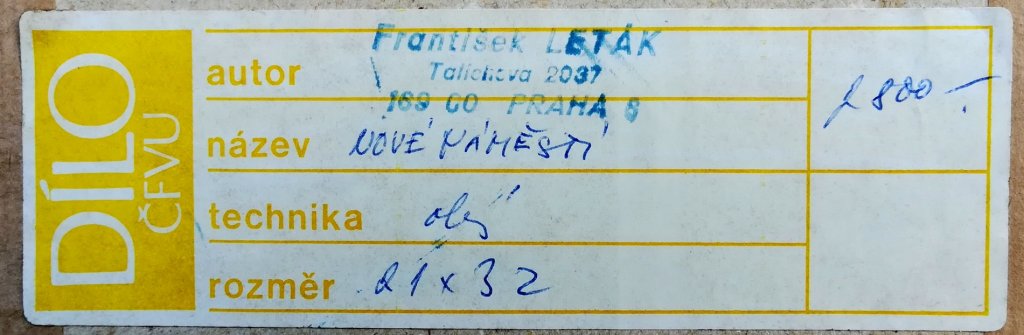 DÍLO
ČFVU
autor František LETÁK
Talichova 2037
169 00 PRAHA 6
název NOVÉ NÁMĚSTÍ
technika olej
rozměr 21 x 32
2800 -